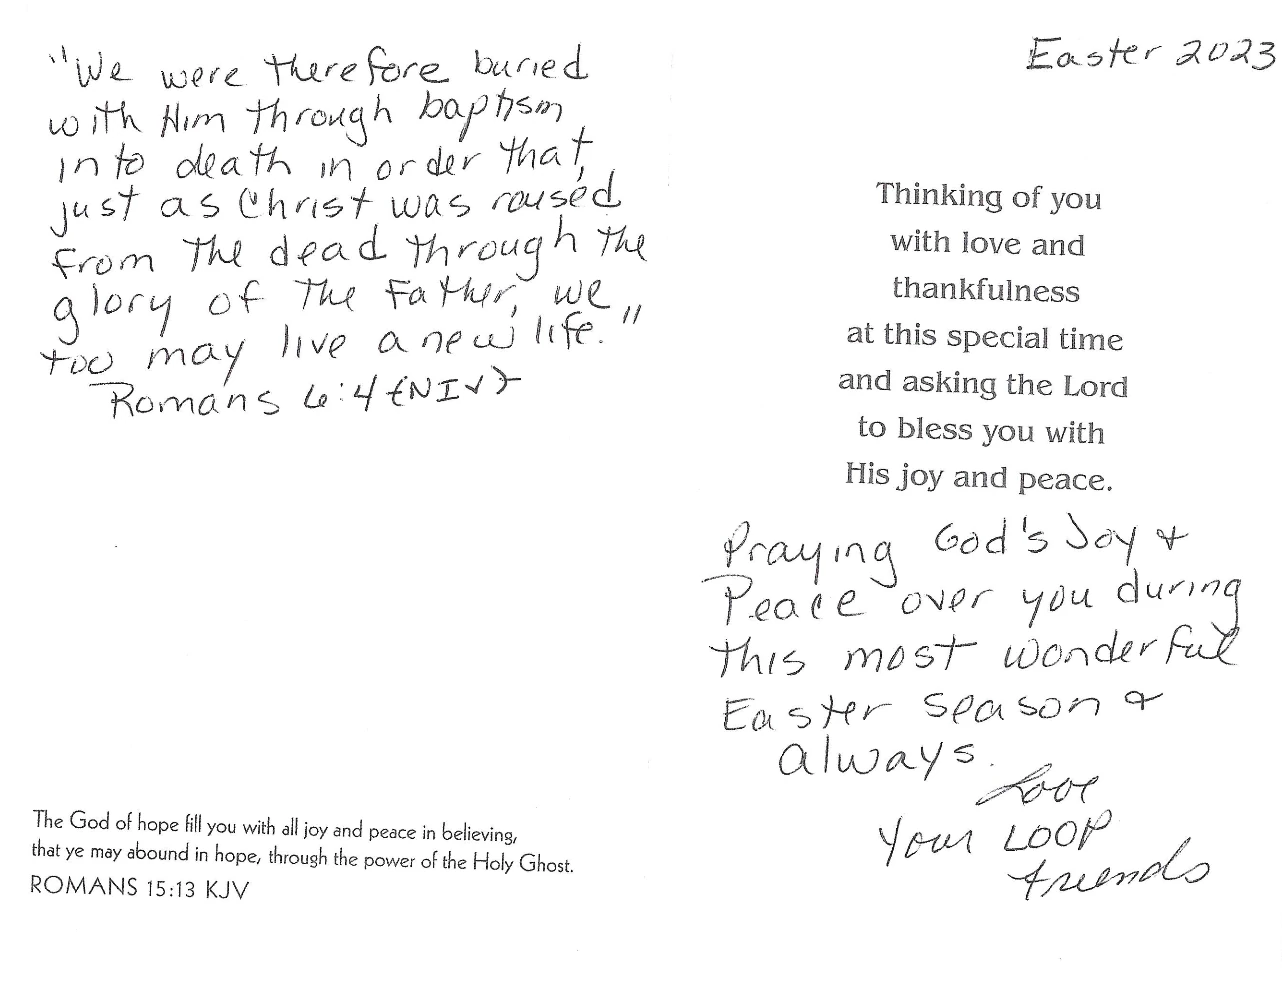 "We were therefore buried
with Him through baptism
into death in order that,
just as Christ was roused
from the dead through the
glory of the Father, we
too may live a new life."
Romans 6:4 {NIV}
The God of hope fill you with all joy and peace in believing,
that ye may abound in hope, through the power of the Holy Ghost.
ROMANS 15:13 KJV
Easter 2023
Thinking of you
with love and
thankfulness
at this special time
and asking the Lord
to bless you with
His joy and peace.
Praying God's Joy &
Peace over you during
this most wonderful
Easter season &
always.
Love
Your LOOP
friends